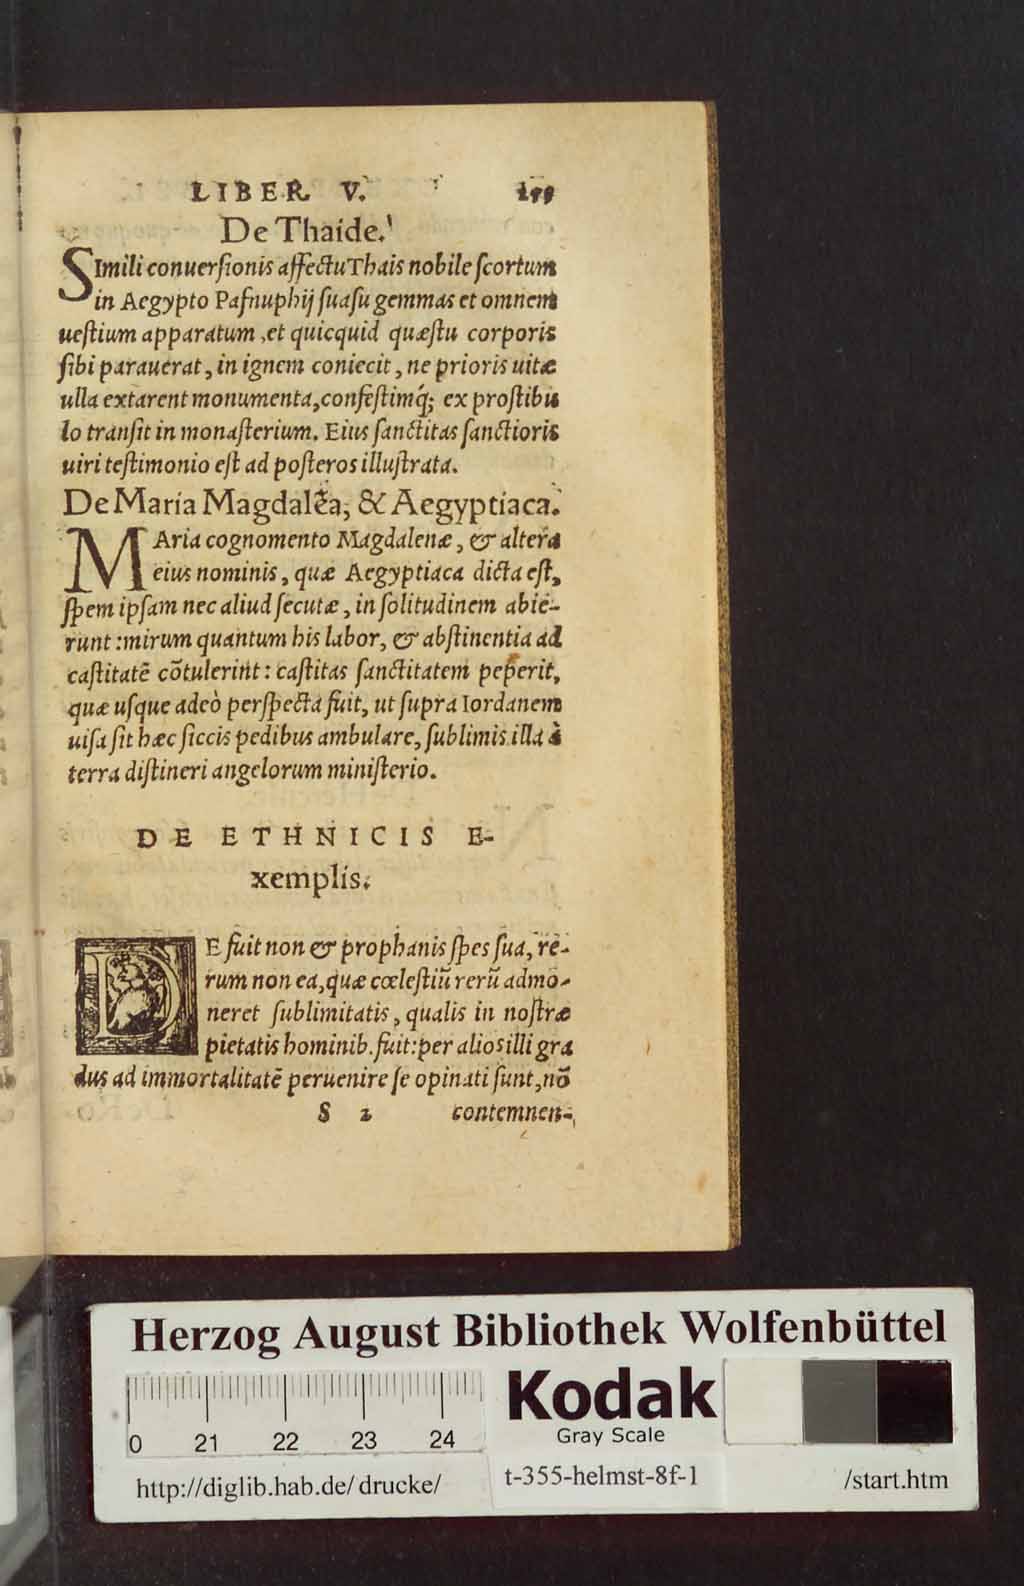 LIBER V.
De Thaide.
SImili conuersionis affectu Thais nobile scortum
in Aegypto Pafnuphij suasu gemmas et omnem
uestium apparatum, et quicquid quæstu corporis
sibi parauerat, in ignem coniecit, ne prioris uitæ
ulla extarent monumenta, confestimq́; ex prostibu
lo transit in monasterium. Eius sanctitas sanctioris
uiri testimonio est ad posteros illustrata.
De Maria Magdalẽa, & Aegyptiaca.
MAria cognomento Magdalenæ, & altera
eius nominis, quæ Aegyptiaca dicta est,
spem ipsam nec aliud secutæ, in solitudinem abie-
runt: mirum quantum his labor, & abstinentia ad
castitatẽ cõtulerint: castitas sanctitatem peperit,
quæ usque adeò perspecta fuit, ut supra Iordanem
uisa sit hæc siccis pedibus ambulare, sublimis illa à
terra distineri angelorum ministerio.
DE ETHNICIS E-
xemplis.
DE fuit non & prophanis spes sua, re-
rum non ea, quæ cœlestiũ rerũ admo-
neret sublimitatis, qualis in nostræ
pietatis hominib. fuit: per alios illi gra
dus ad immortalitatẽ peruenire se opinati sunt, nõ
S 2 contemnen-
Herzog August Bibliothek Wolfenbüttel
Kodak
Gray Scale
0 21 22 23 24
http://diglib.hab.de/drucke/ t-355-helmst-8f-1 /start.htm